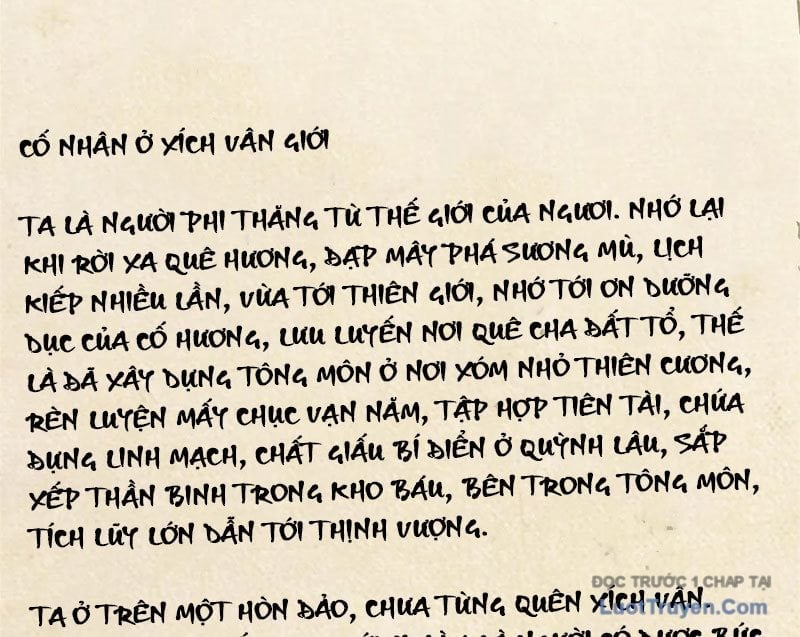 CỐ NHÂN Ở XÍCH VÂN GIỚI
TA LÀ NGƯỜI PHI THĂNG TỪ THẾ GIỚI CỦA NGƯƠI. NHỚ LẠI
KHI RỜI XA QUÊ HƯƠNG, ĐẠP MÂY PHÁ SƯƠNG MÙ, LỊCH
KIẾP NHIỀU LẦN, VỪA TỚI THIÊN GIỚI, NHỚ TỚI ƠN DƯỠNG
DỤC CỦA CỐ HƯƠNG, LƯU LUYẾN NƠI QUÊ CHA ĐẤT TỔ, THẾ
LÀ ĐÃ XÂY DỰNG TÔNG MÔN Ở NƠI XÓM NHỎ THIÊN CƯƠNG,
RÈN LUYỆN MẤY CHỤC VẠN NĂM, TẬP HỢP TIÊN TÀI, CHỨA
ĐỰNG LINH MẠCH, CHẤT GIẤU BÍ ĐIỂN Ở QUỲNH LÂU, SẮP
XẾP THẦN BINH TRONG KHO BÁU, BÊN TRONG TÔNG MÔN,
TÍCH LŨY LỚN DẪN TỚI THỊNH VƯỢNG.
ĐỌC TRƯỚC 1 CHAP TẠI
TA Ở TRÊN MỘT HÒN ĐẢO, CHƯA TỪNG QUÊN XÍCH VÂN.
LuotTruyen.Com